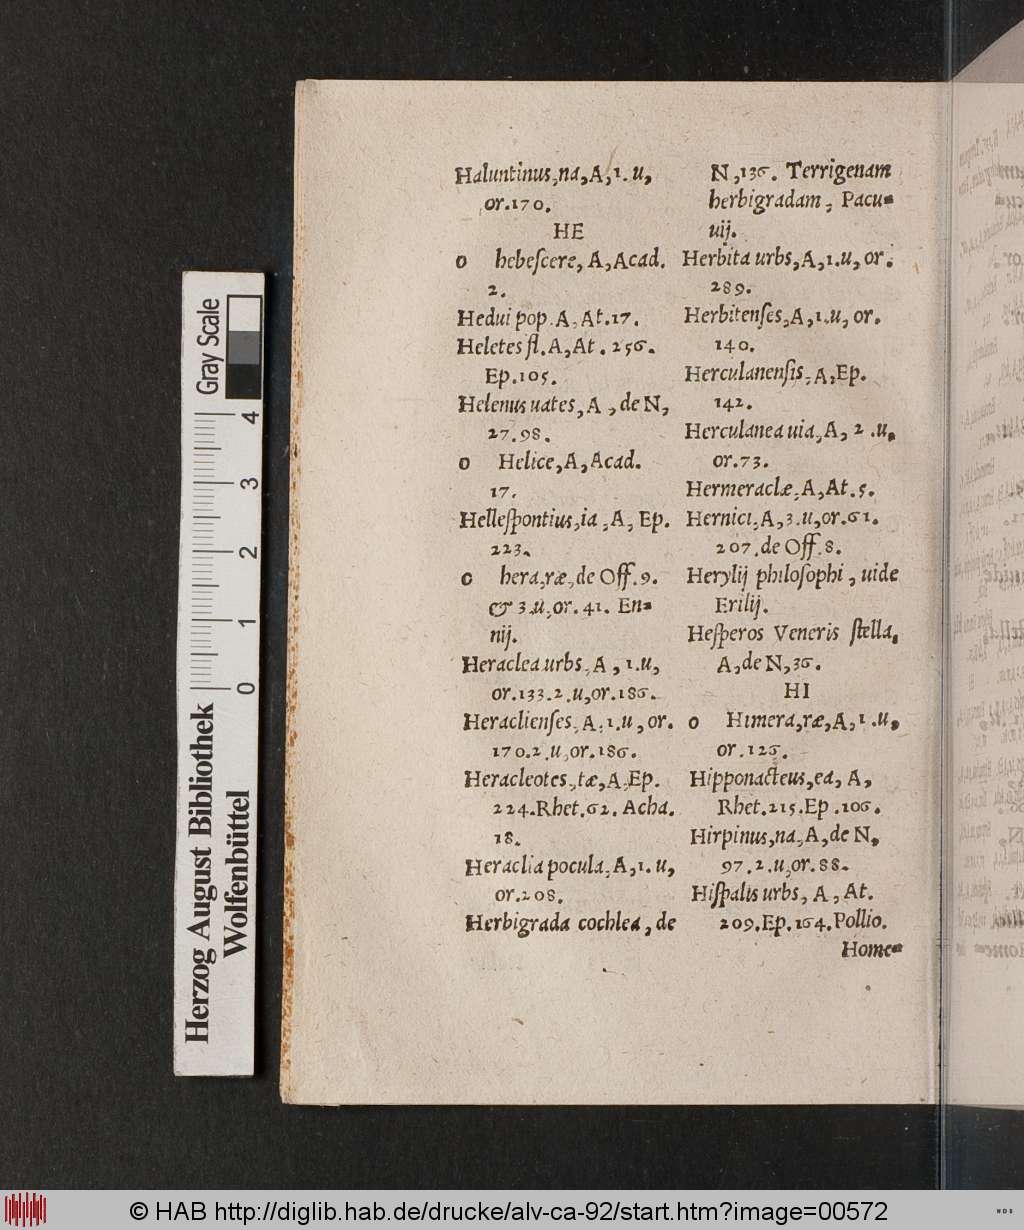 Haluntinus,na,A,1.u,
or.170.
HE
o hebeſcere, A,Acad.
2.
Hedui pop.A,At.17.
Heletes fl.A,At.256.
Ep.105.
Helenus uates,A,de N,
27.98.
o Helice,A,Acad.
17.
Helleſpontius,ia,A,Ep.
223.
o hera,ræ,de Off.9.
& 3.u,or.41. En-
nij.
Heraclea urbs,A,1.u,
or.133.2.u,or.186.
Heraclienſes,A,1.u,or.
170.2.u,or.186.
Heracleotes,tæ,A,Ep.
224.Rhet.62. Acha.
18.
Heraclia pocula,A,1.u,
or.208.
Herbigrada cochlea, de
N,136. Terrigenam
herbigradam, Pacu-
uij.
Herbita urbs,A,1.u,or.
289.
Herbitenſes,A,1.u,or.
140.
Herculanenſis,A,Ep.
142.
Herculanea uia,A,2.u,
or.73.
Hermeraclæ,A,At.5.
Hernici,A,3.u,or.61.
207.de Off.8.
Herylij philoſophi, uide
Erilij.
Heſperos Veneris ſtella,
A,de N,36.
HI
o Himera,ræ,A,1.u,
or.126.
Hipponacteus,ea,A,
Rhet.215.Ep.106.
Hirpinus,na,A,de N,
97.2.u,or.88.
Hiſpalis urbs,A,At.
209.Ep.164.Pollio.
Home-
Gray Scale
4
3
2
1
0
Herzog August Bibliothek
Wolfenbüttel
© HAB http://diglib.hab.de/drucke/alv-ca-92/start.htm?image=00572